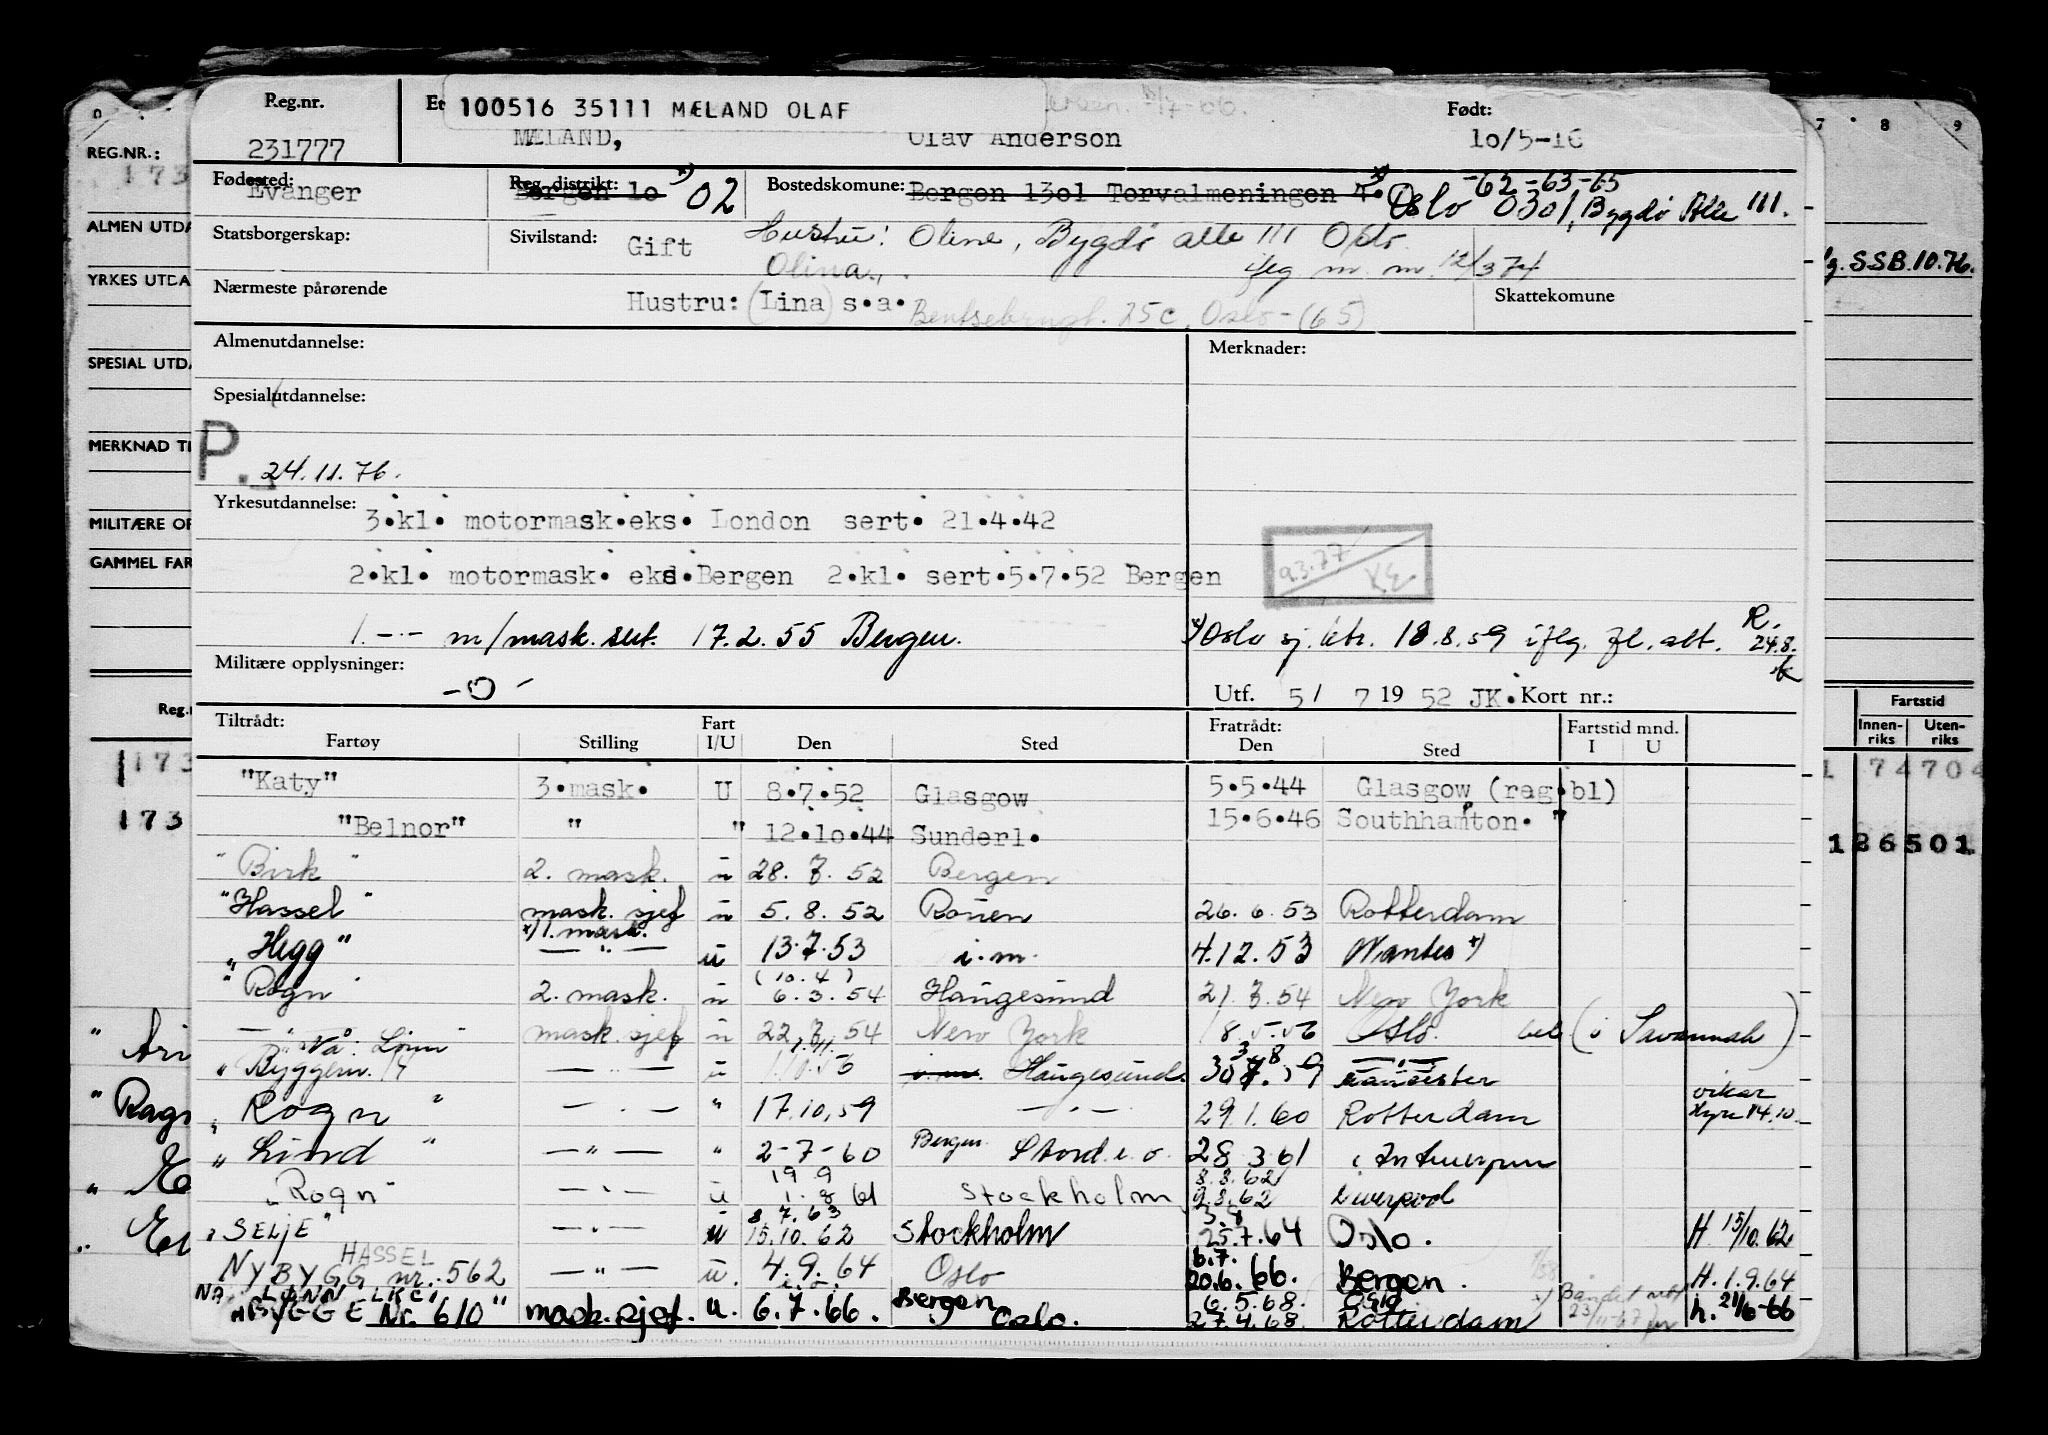 Reg.nr.
100516 35111 MÆLAND OLAF
Født:
231777
MÆLAND, Olav Anderson
10/5-16
Fødested: Evanger
Reg. distrikt: Bergen 10 x) 02
Bostedskomune: Bergen 1301 Torvalmeningen 4. x) Oslo 0301, Bygdø Alle 111.
-62-63-65
Statsborgerskap:
Sivilstand: Gift
Hustru: Oline, Bygdø alle 111 Oslo.
Olina
iflg m. m. 12/3 74
Nærmeste pårørende
Hustru: (Lina) s.a. Bentsebrugt. 25c, Oslo - (65)
Skattekomune
Almenutdannelse:
Merknader:
Spesialutdannelse:
P.
24.11.76.
Yrkesutdannelse: 3.kl. motormask.eks. London sert. 21.4.42
2.kl. motormask. eks.Bergen 2.kl. sert.5.7.52 Bergen
9.3.77
KE
1. -·- m/mask. sert. 17.2.55 Bergen.
x) Oslo sj. ktr. 18.8.59 iflg. fl. att. R.
24.8.
Militære opplysninger:
-0-
Utf. 5/ 7 19 52 JK. Kort nr.:
Tiltrådt:
Fartøy
Stilling
Fart I/U
Den
Sted
Fratrådt:
Den
Sted
Fartstid mnd.
I U
"Katy" 3.mask. U 8.7.52 Glasgow 5.5.44 Glasgow (reg.bl)
"Belnor" " " 12.10.44 Sunderl. 15.6.46 Southhamton. "
"Birk" 2. mask. u 28.7.52 Bergen
"Hassel" mask. sjef u 5.8.52 Rouen 26.6.53 Rotterdam
x) 1. mask.
"Hegg" -"- u 13.7.53 i.m. 4.12.53 Nantes x)
(10.4)
"Rogn" 2. mask. u 6.3.54 Haugesund 21.7.54 New York
-"- mask. sjef u 22.7.54 New York 18.5.56 Oslo. (i Savannah)
Nå: Lønn
"Byggenr. 14 -"- u 1.10.56 i.m. Haugesund 30.7.59
3.8
"Rogn" -"- " 17.10.59 -"- 29.1.60 Rotterdam
vikar
hyre 14.10.
"Lind" -"- " 2-7-60 Bergen Stord i.o. 28.3.61 i Antwerpen
19.9
8.3.62
"Rogn" -"- u 1.8.61 Stockholm 9.3.62 Liverpool
8.7.63
3.8
"SELJE" -"- u 15.10.62 Stockholm 25.7.64 Oslo. H. 15/10.62
HASSEL
6.7.
NYBYGG nr. 562 -"- u. 4.9.64 Oslo 20.6.66. Bergen. H. 1.9.64
NÅ LØNN LKCI
6.5.68. Oslo
"BYGGE Nr. 610" mask.sjef. u. 6.7.66. Bergen Oslo. 27.4.68. Rotterdam h. 21/6-66
23/11-67
REG.NR.:
173
ALMEN UTDA
YRKES UTDA
SPESIAL UTDA
MERKNAD TI
MILITÆRE OP
GAMMEL FAR
Reg.
173
173
7 8 9
S.S.B. 10.76.
Fartstid
Innen-riks
Uten-riks
1 74704
186501